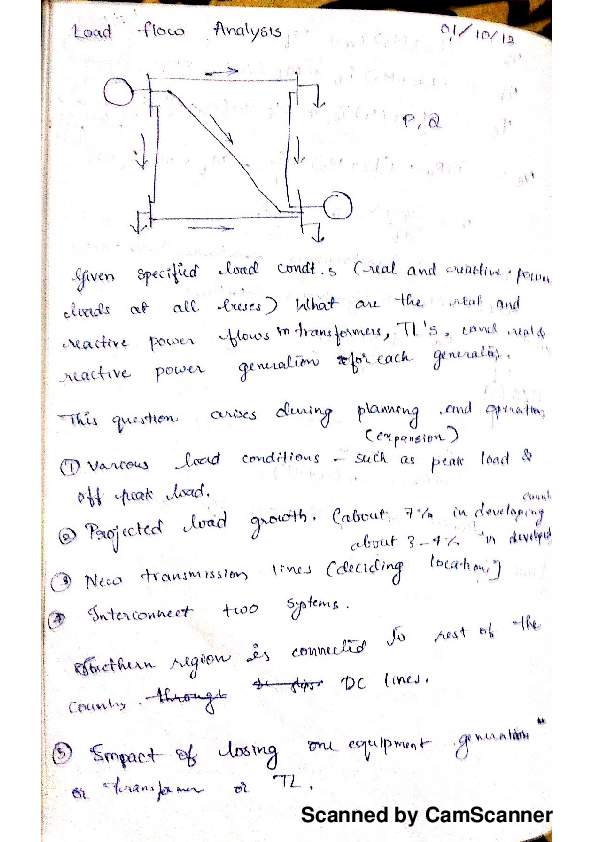 Load flow Analysis 01/10/12
P, Q
Given specified load condt.s (real and reactive power
loads at all buses) What are the real and
reactive power flows in transformers, TL's, and real &
reactive power generation for each generator.
This question arises during planning and operation
(expansion)
① Various load conditions - such as peak load &
off peak load.
② Projected load growth. (about 7% in developing
count
about 3-4% in develped
③ New transmission lines (deciding location)
④ Interconnect two systems.
region is connected to rest of the
country through DC lines.
⑤ Impact of losing one equipment generation
or transformer or TL.
Scanned by CamScanner